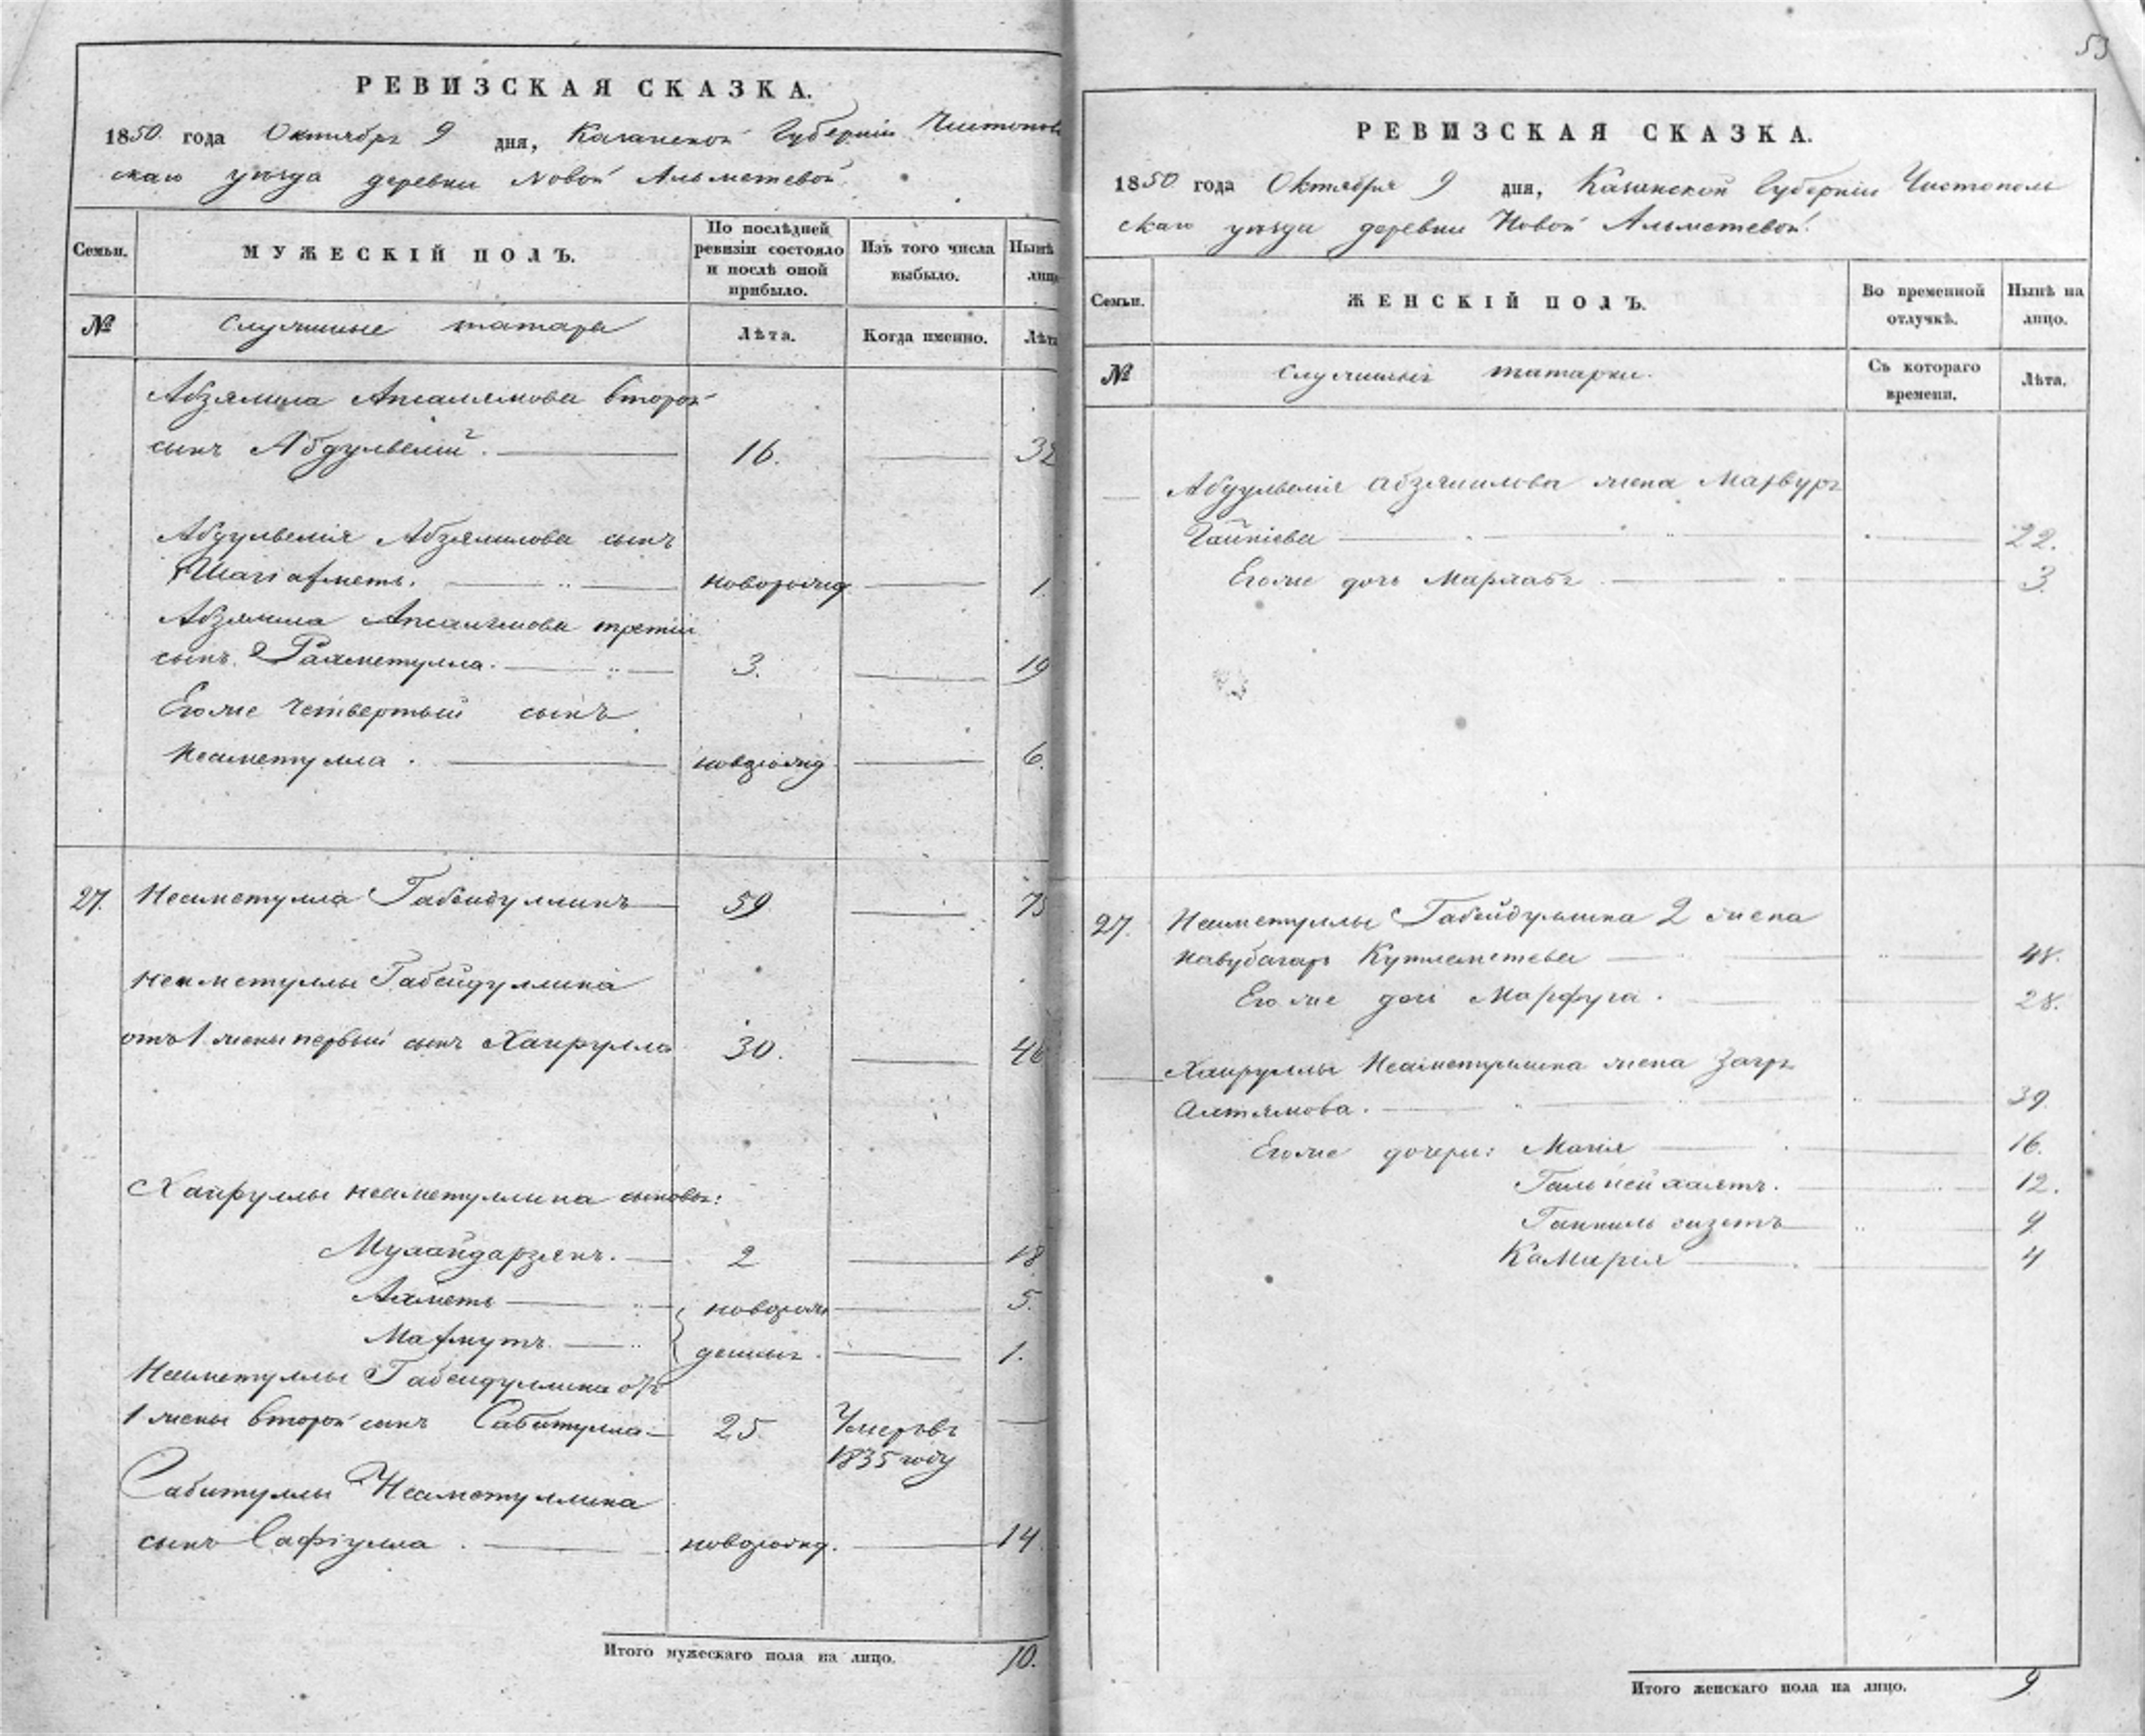 РЕВИЗСКАЯ СКАЗКА.
1850 года Октября 9 дня, Казанской Губерніи Чистополь
скаго уѣзда деревни Новой Альметевой
Семьи.
МУЖЕСКІЙ ПОЛЪ.
По послѣдней
ревизіи состояло
и послѣ оной
прибыло.
Изъ того числа
выбыло.
Нынѣ
лицо
№
служилые татары
Лѣта.
Когда именно.
Лѣта
Абзямила Апсалямова второй
сынъ Абдулвелій. 16. 32
Абдулвелія Абзямилова сынъ
Шагіахметъ. новорожд 1
Абзямила Апсалямова третій
сынъ Рахметулла. 3. 19
Егоже четвертый сынъ
Неаметулла. новорожд 6.
27. Неаметулла Габейдуллинъ 59 75
Неаметуллы Габейдуллина
отъ 1 жены первый сынъ Хайрулла 30. 46
Хайруллы Неаметуллина сыновья:
2 18
Ахметь новорож 5.
Махмутъ. денные 1.
Неаметуллы Габейдуллина отъ
1 жены второй сынъ Сабитулла 25. Умеръ въ
1835 году
Сабитуллы Неаметуллина
сынъ Сафіулла. новорожд. 14.
Итого мужескаго пола на лицо. 10.
53
РЕВИЗСКАЯ СКАЗКА.
1850 года Октября 9 дня, Казанской Губерніи Чистополь
скаго уѣзда деревни Новой Альметевой.
Семьи.
ЖЕНСКІЙ ПОЛЪ.
Во временной
отлучкѣ.
Нынѣ на
лицо.
№
служилыя татарки.
Съ котораго
времени.
Лѣта.
Абдулвелія Абзямилова жена
22.
Егоже дочь 3.
27. Неаметуллы Габейдуллина 2 жена
Кутламетева 48.
Егоже дочь Марфуга. 28.
Хайруллы Неаметуллина жена
Алтямова. 39.
Егоже дочери: 16.
12.
9
Камирія 4
Итого женскаго пола на лицо. 9